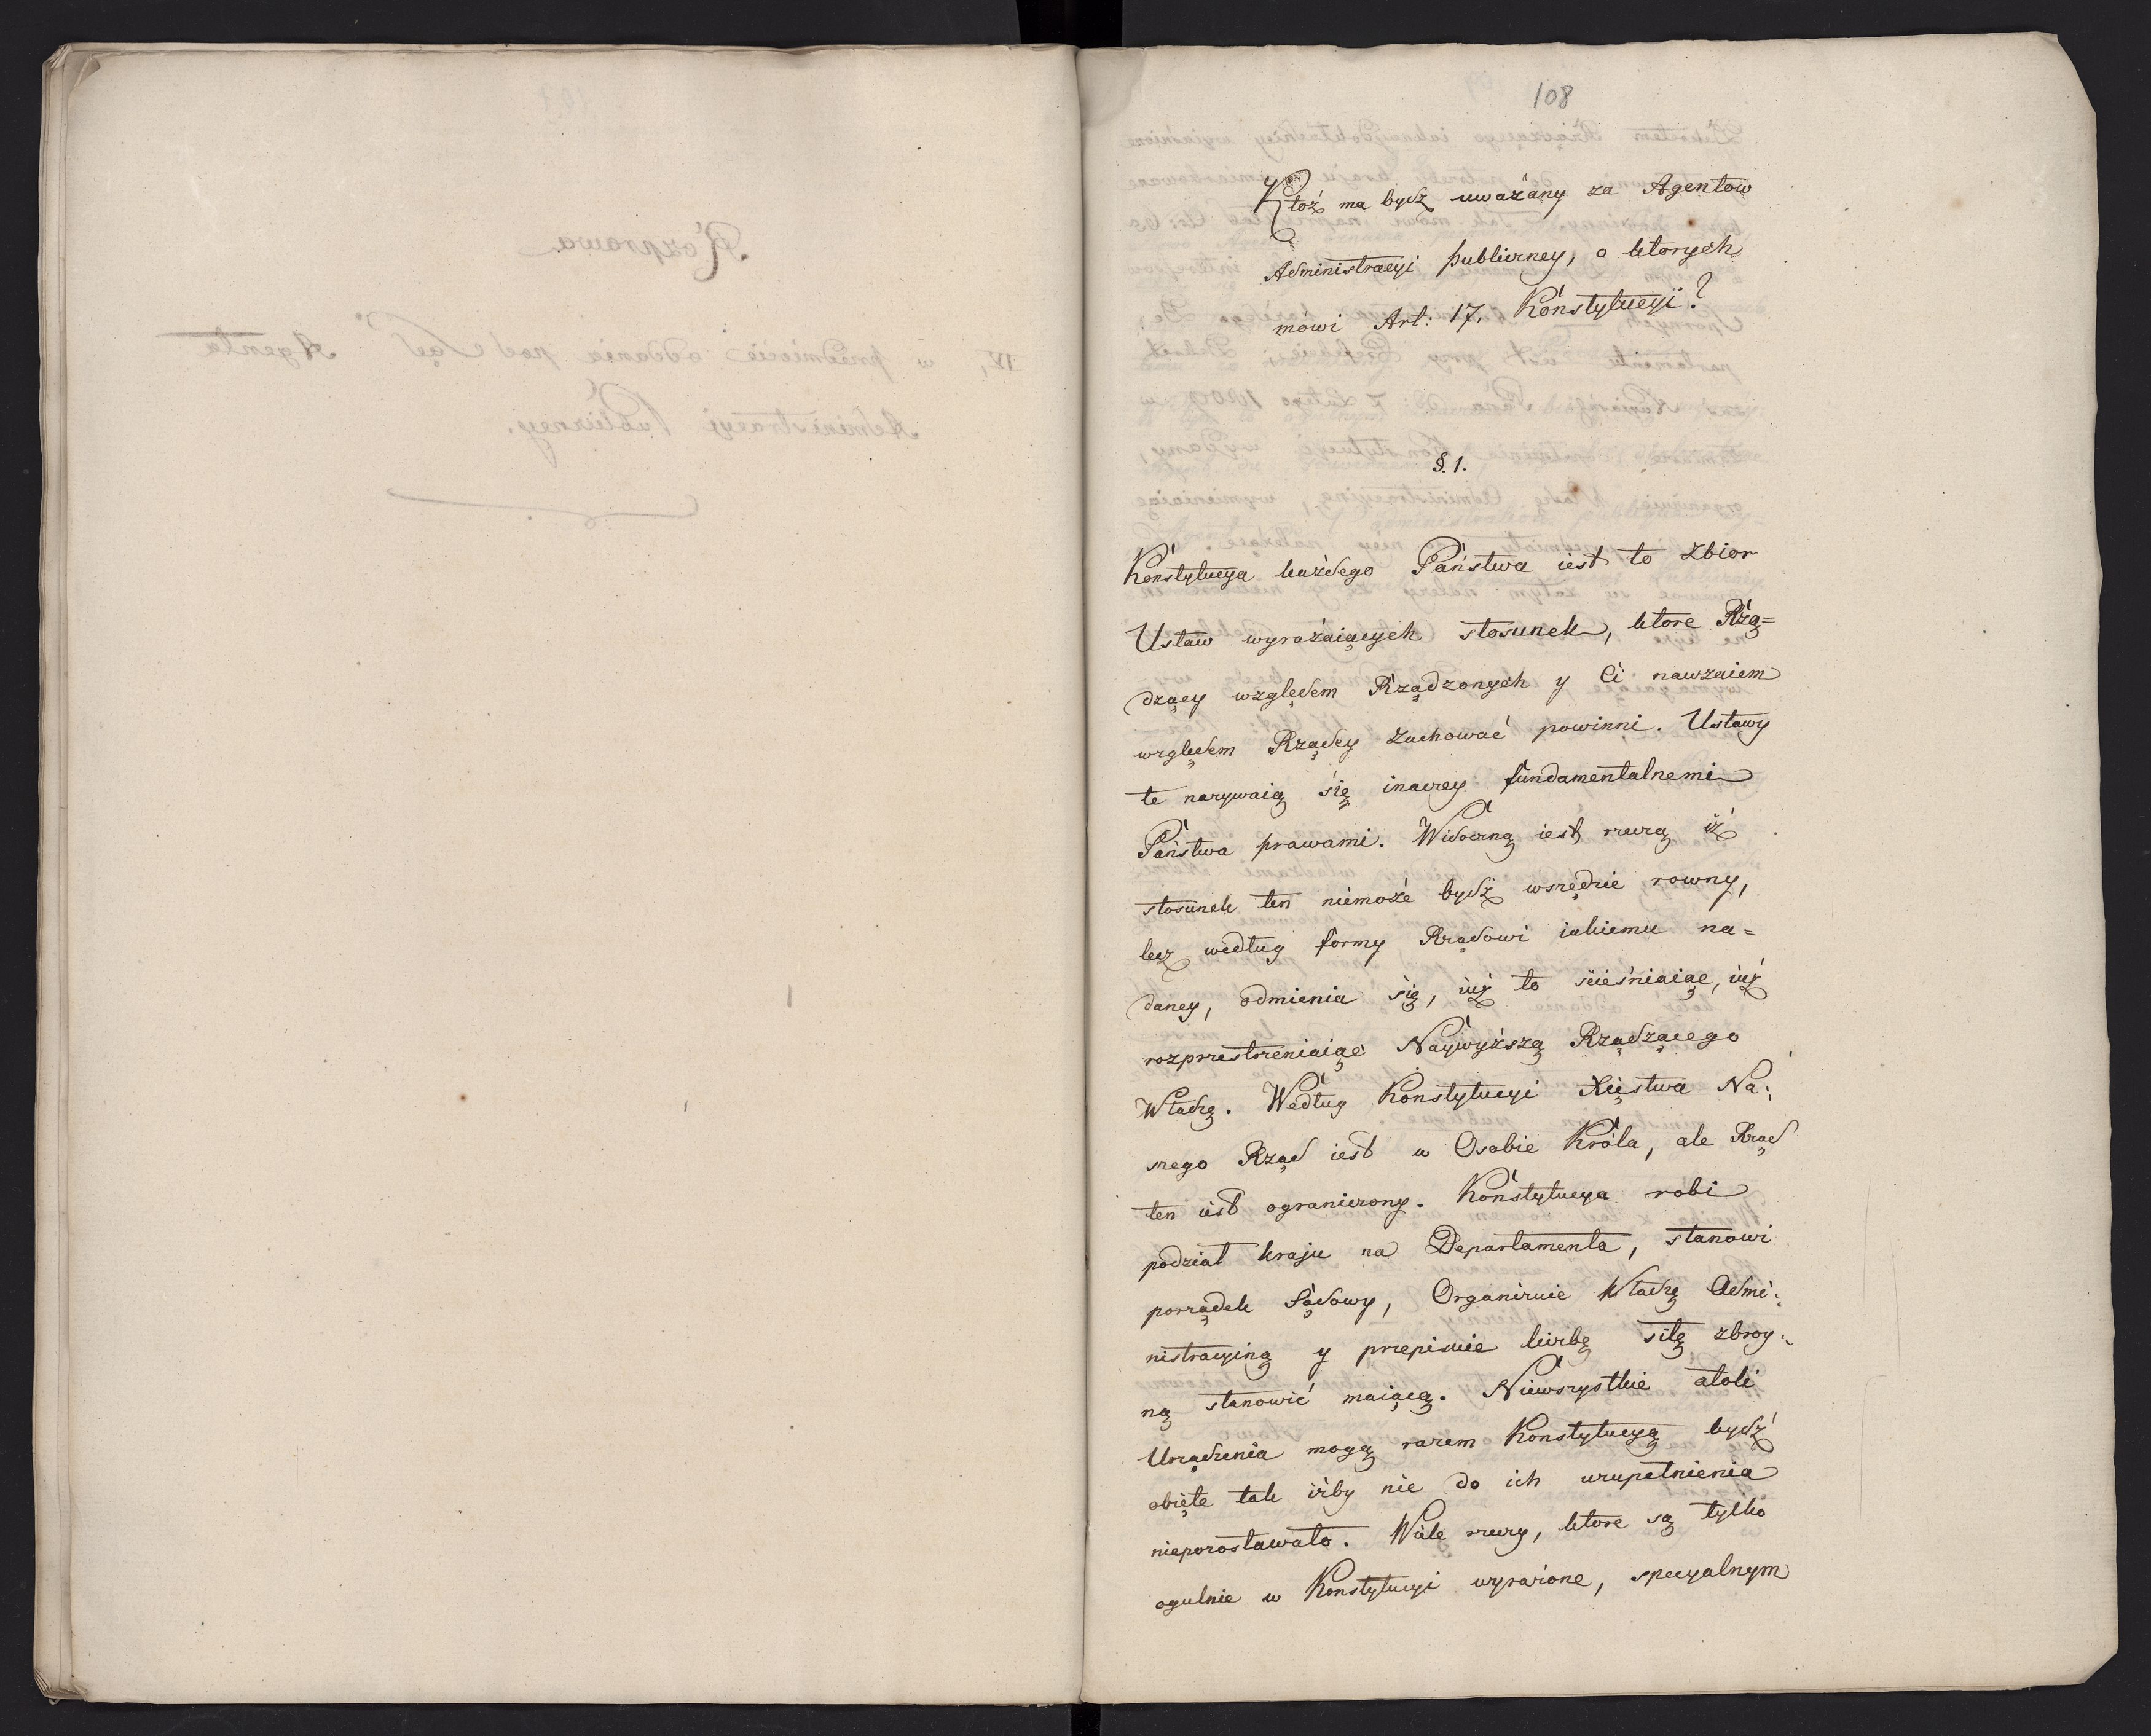 108
Ktoż ma bydź uważany za Agentow
Administracyi publiczney, o ktorych
mowi Art: 17. Konstytucyi?
§. 1.
Konstytucya każdego Państwa iest to Zbior
Ustaw wyrażaiących stosunek, ktore Rzą=
dzący względem Rządzonych y Ci nawzaiem
względem Rządcy zachować powinni. Ustawy
te nazywaią się inaczey fundamentalnemi
Państwa prawami. Widoczną iest rzeczą iż
stosunek ten niemoże bydź wszędzie rowny,
lecz według formy Rządowi iakiemu na=
daney, odmienia się, iuż to ścieśniaiąc, iuż
rozprzestrzeniaiąc Naywyższą Rządzącego
Władzę. Według Konstytucyi Xięstwa Na:
szego Rząd iest w Osobie Króla, ale Rząd
ten iest ograniczony. Konstytucya robi
podział kraju na Departamenta, stanowi
porządek Sądowy, Organizuie Władzę Admi:
nistracyiną y przepisuie liczbę siłę zbroy:
ną stanowić maiącą. Niewszystkie atoli
Urządzenia mogą razem Konstytucyą bydź
obięte tak iżby nie do ich uzupełnienia
niepozostawało. Wiele rzeczy, ktore są tylko
ogulnie w Konstytucyi wyrażone, specyalnym